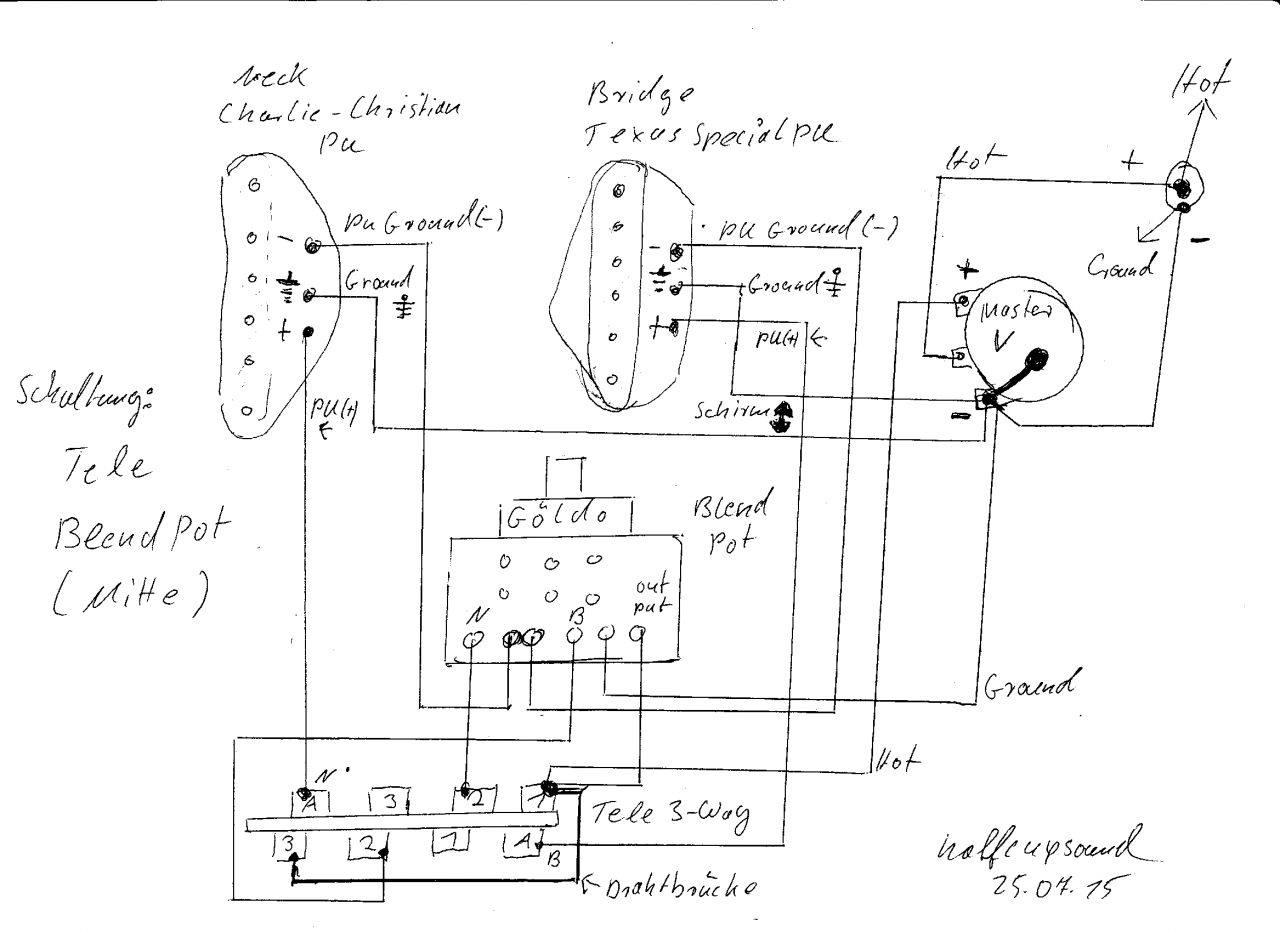 Neck
Charlie-Christian
PU
Bridge
Texas Special PU
Hot
Hot
+
-
Ground
PU Ground (-)
-
Ground
+
PU(+)
PU Ground (-)
-
Ground
+
PU(+)
Schirm
+
Master
V
-
Schaltung:
Tele
Blend Pot
(Mitte)
Göldo
Blend
Pot
out
put
N
B
Ground
Hot
N
A
3
2
1
Tele 3-Way
3
2
1
A
B
Drahtbrücke
25.07.15